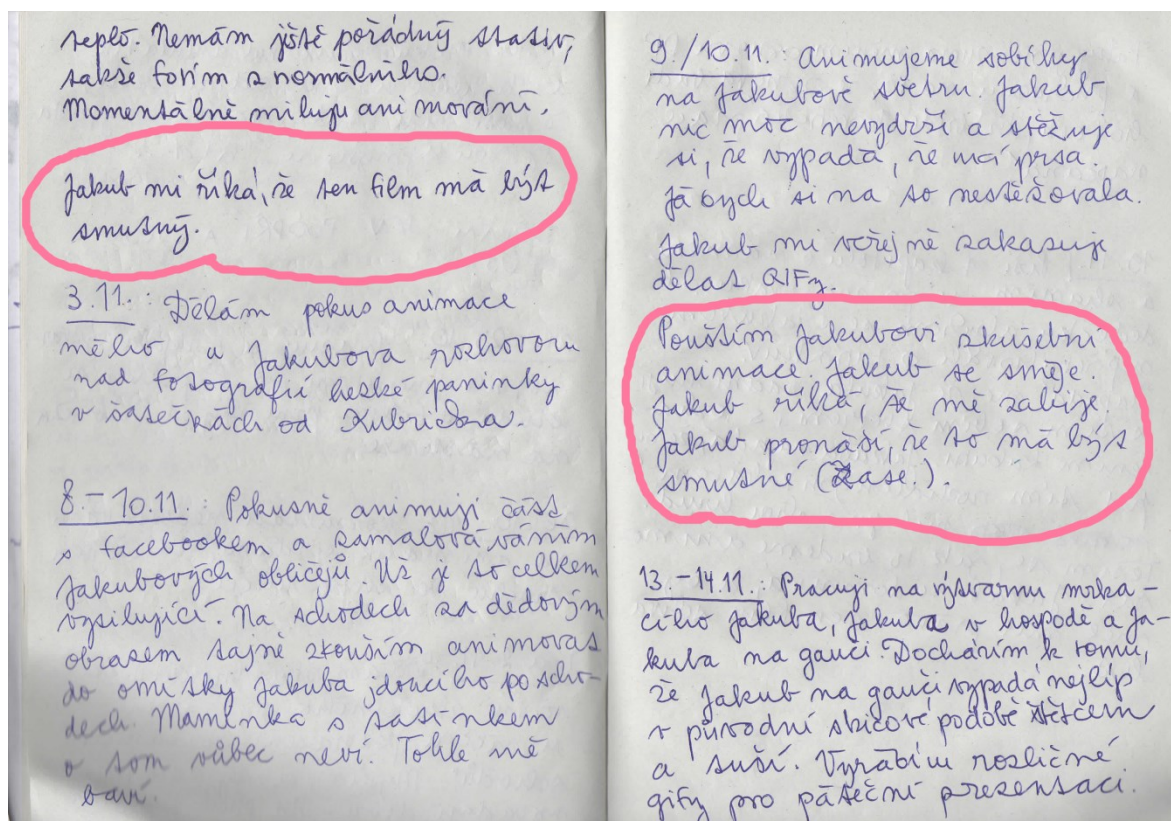 teplo. Nemám jště pořádný stativ,
takže fotím z normálního.
Momentálně miluju animování.
Jakub mi říká, že ten film má být
smutný.
3.11.: Dělám pokus animace
mého a Jakubova rozhovoru
nad fotografií hezké paninky
v šatečkách od Kubricka.
8.-10.11.: Pokusně animuji část
s facebookem a zamalovávaním
Jakubových obličejů. Už je to celkem
vysilující. Na schodech za dědovým
obrazem tajně zkouším animovat
do omítky Jakuba jdoucího po scho-
dech. Maminka s tatínkem
o tom vůbec neví. Tohle mě
baví.
9./10.11. Animujeme sobíky
na Jakubově svetru. Jakub
nic moc nevydrží a stěžuje
si, že vypadá, že má prsa.
Já bych si na to nestěžovala.
Jakub mi veřejně zakazuje
dělat GIFy.
Pouštím Jakubovi zkušební
animace. Jakub se směje.
Jakub říká, že mě zabije.
Jakub pronáší, že to má být
smutné (Zase.).
13.-14.11.: Pracuji na výtvarnu mrka-
cího Jakuba, Jakuba v hospodě a Ja-
kuba na gauči. Docházím k tomu,
že Jakub na gauči vypadá nejlíp
v původní skicové podobě štětcem
a tuší. Vyrábím rozličné
gify pro páteční prezentaci.